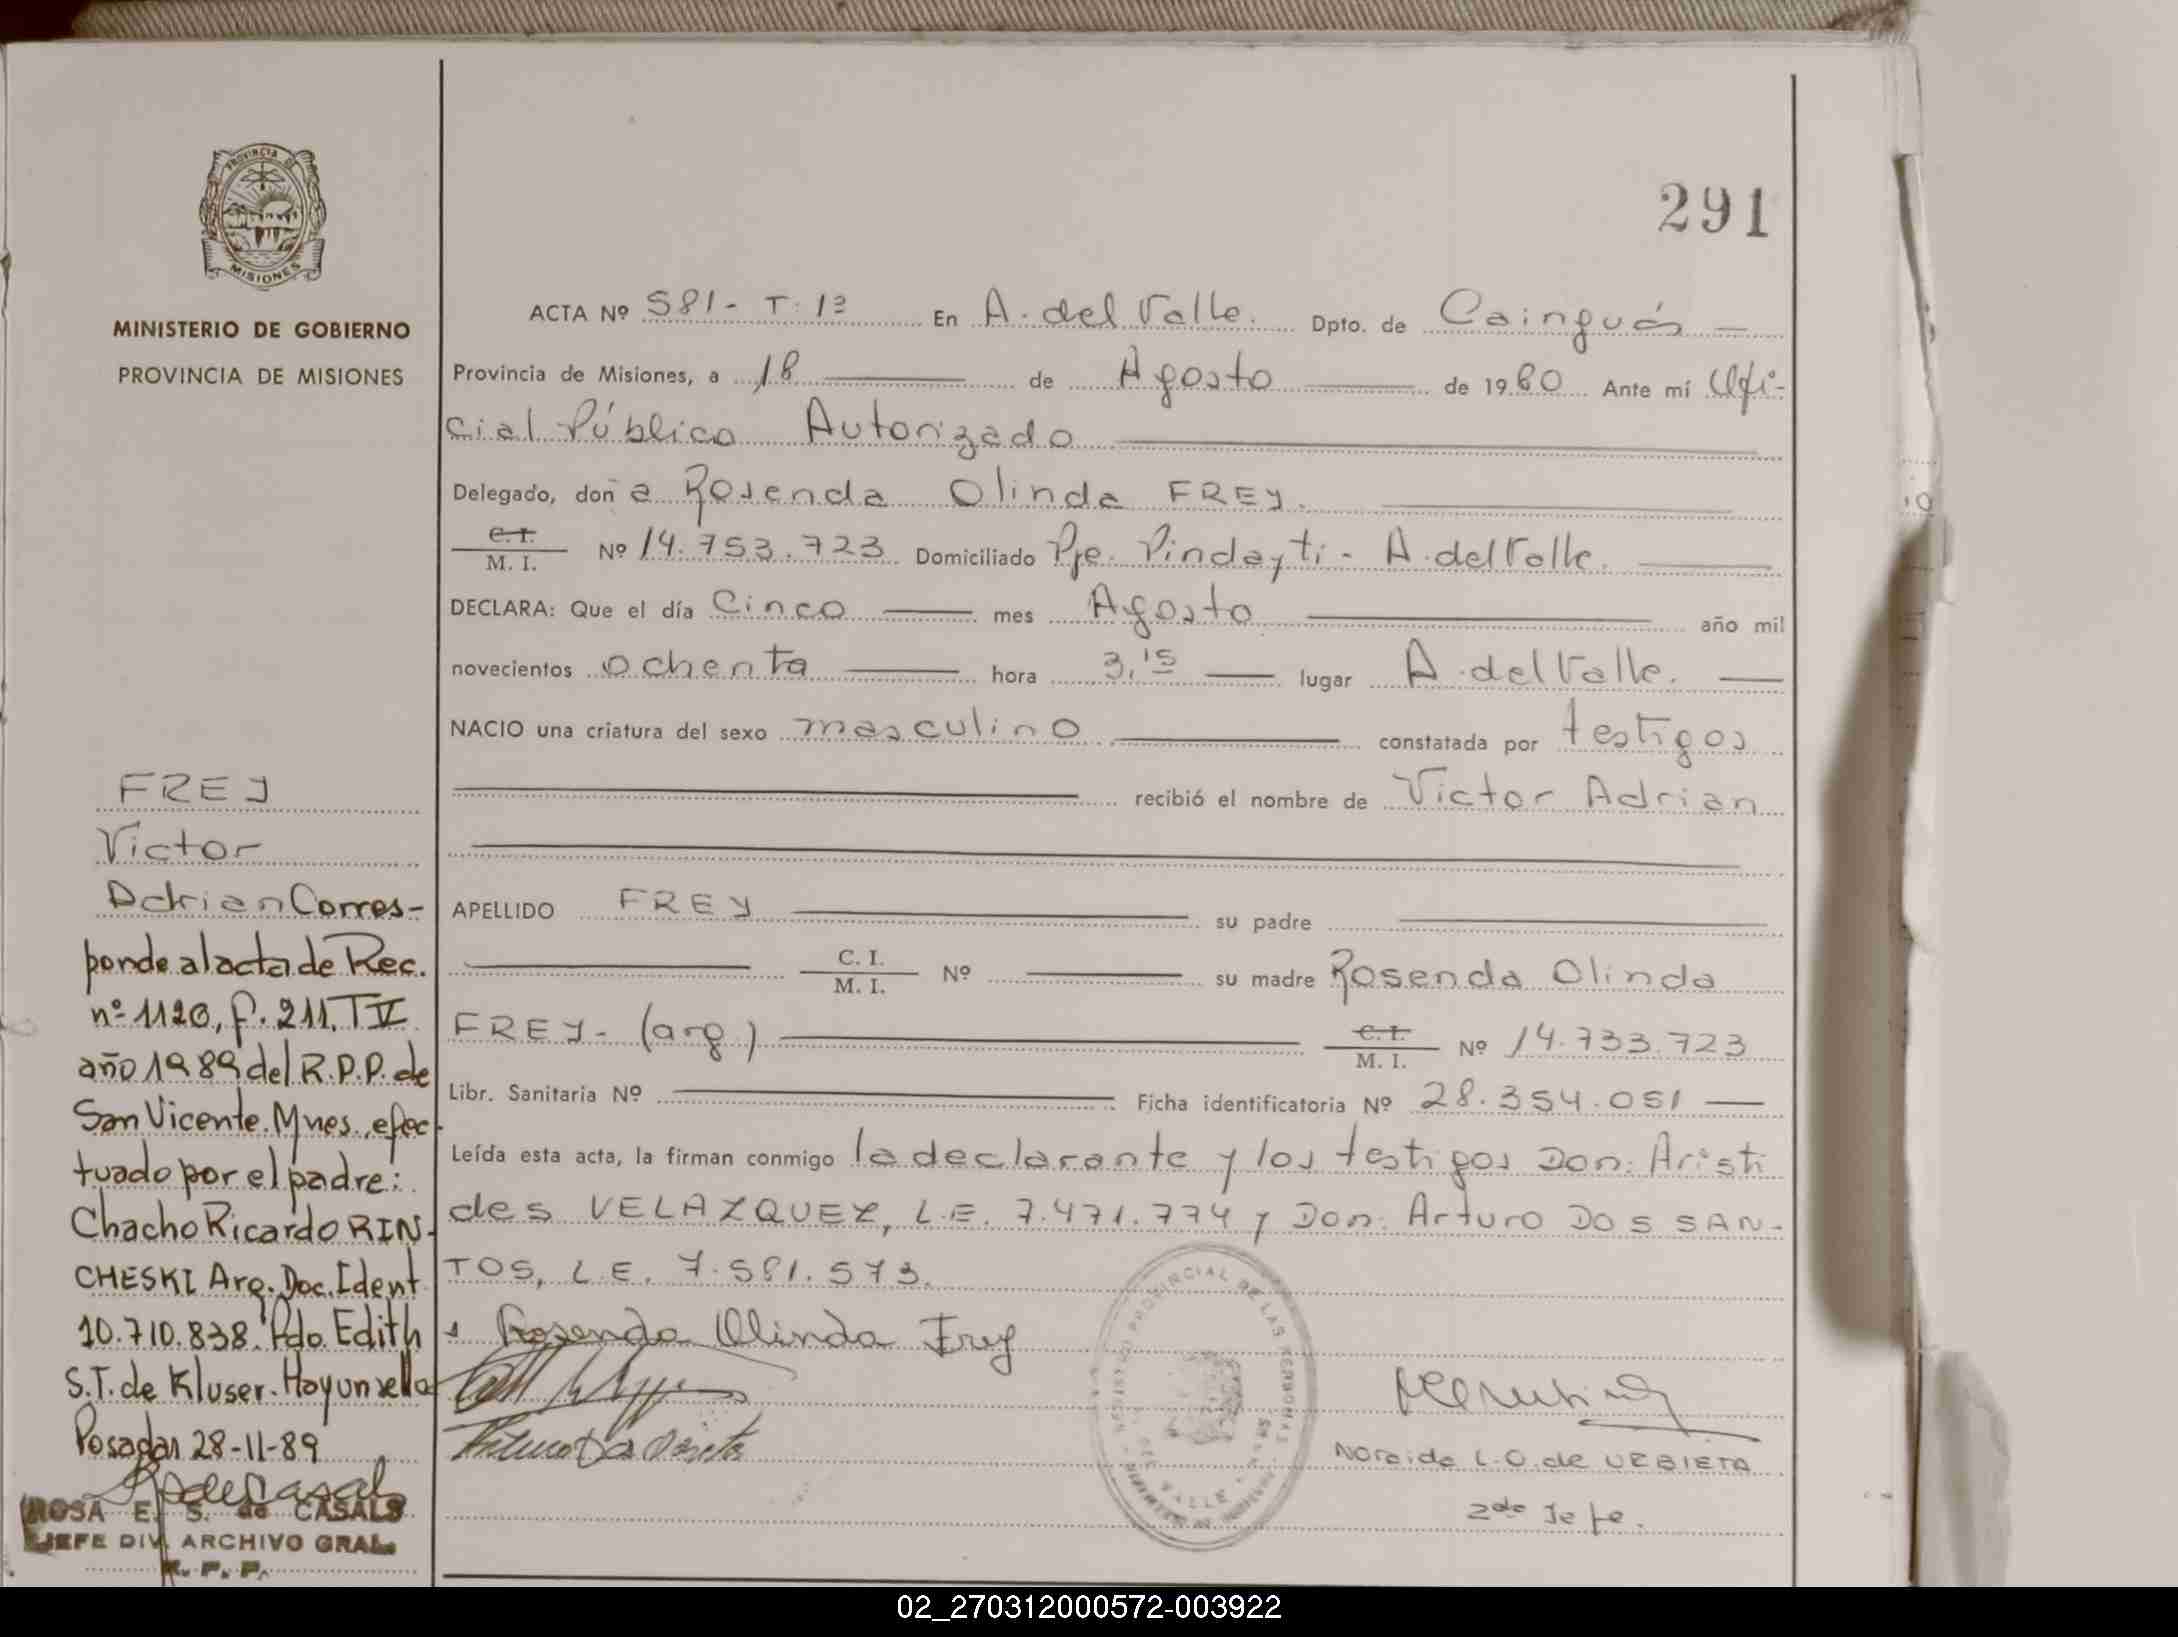 PROVINCIA DE
MISIONES
MINISTERIO DE GOBIERNO
PROVINCIA DE MISIONES
291
ACTA Nº 581- T: 1º En A. del Valle. Dpto. de Cainguás
Provincia de Misiones, a 18 de Agosto de 1980 Ante mí Ofi-
cial Público Autorizado
Delegado, don a Rosenda Olinda FREY.
C.I.
M. I. Nº 14.753.723 Domiciliado Pje. Pindayti - A. del Valle.
DECLARA: Que el día Cinco mes Agosto año mil
novecientos ochenta hora 3,15 lugar A. del Valle.
NACIO una criatura del sexo masculino constatada por testigos
recibió el nombre de Victor Adrian
APELLIDO FREY su padre
C. I.
M. I. Nº su madre Rosenda Olinda
FREY - (arg.) C.I.
M. I. Nº 14.733.723
Libr. Sanitaria Nº Ficha identificatoria Nº 28.354.051
Leída esta acta, la firman conmigo la declarante y los testigos Don: Aristi
des VELAZQUEZ, L.E. 7.471.774 y Don: Arturo DOS SAN-
TOS, L.E. 7.581.573.
Rosenda Olinda Frey
REGISTRO PROVINCIAL DE LAS PERSONAS
Noraida L.O. de URBIETA
2do Jefe.
FREY
Victor
Adrian Corres-
ponde al acta de Rec.
nº 1120, f. 211, T V
año 1989 del R.P.P. de
San Vicente. Mnes., efec-
tuado por el padre:
Chacho Ricardo RIN-
CHESKI Arg. Doc. Ident
10.710.838. Fdo. Edith
S.T. de Kluser. Hay un sello
Posadas 28-11-89
ROSA E. S. de CASALS
JEFE DIV. ARCHIVO GRAL.
R. P. P.
02_270312000572-003922